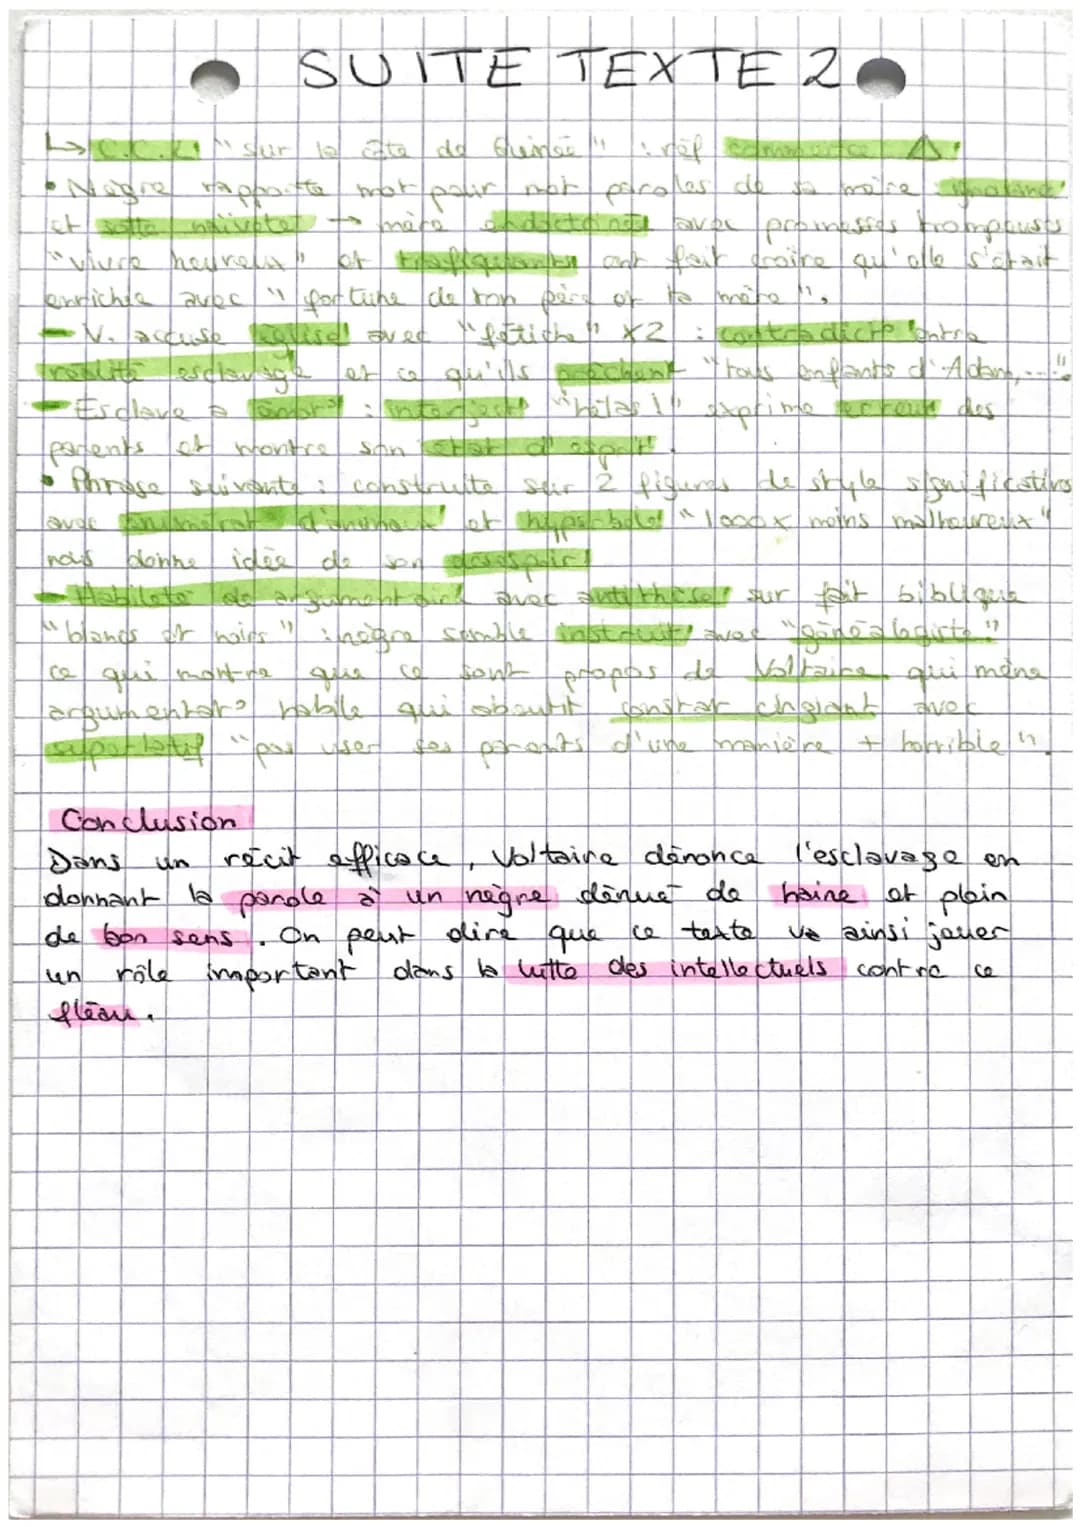 SUITE TEXTE 2
↳ C.C.L. "sur la côte de Guinée" : réf commerce △
• Nègre rapporte mot pour mot paroles de sa mère : ignorance
et sotte naïveté → mère endoctrinée avec promesses trompeuses
"vivre heureux" et trafiquants ont fait croire qu'elle s'était
enrichie avec "fortune de ton père et ta mère".
- V. accuse église avec "fétiche" x2 : contradict° entre
réalité esclavage et ce qu'ils prêchent "tous enfants d'Adam,...".
- Esclave a : interject° "hélas !" exprime erreur des
parents et montre son état d'esprit.
• Phrase suivante : construite sur 2 figures de style significatives
avec énumérat° d'animaux et hyperbole "1000x moins malheureux"
nous donne idée de son désespoir.
- Habileté de argumentaire avec antithèse sur fait biblique
"blancs et noirs" : nègre semble instruit avec "généalogiste"
ce qui montre que ce sont propos de Voltaire qui mène
argumentat° habile qui aboutit constat cinglant avec
superlatif "pas user ses parents d'une manière + horrible".
Conclusion
Dans un récit efficace, Voltaire dénonce l'esclavage en
donnant la parole à un nègre dénué de haine et plein
de bon sens. On peut dire que ce texte va ainsi jouer
un rôle important dans la lutte des intellectuels contre ce
fléau.